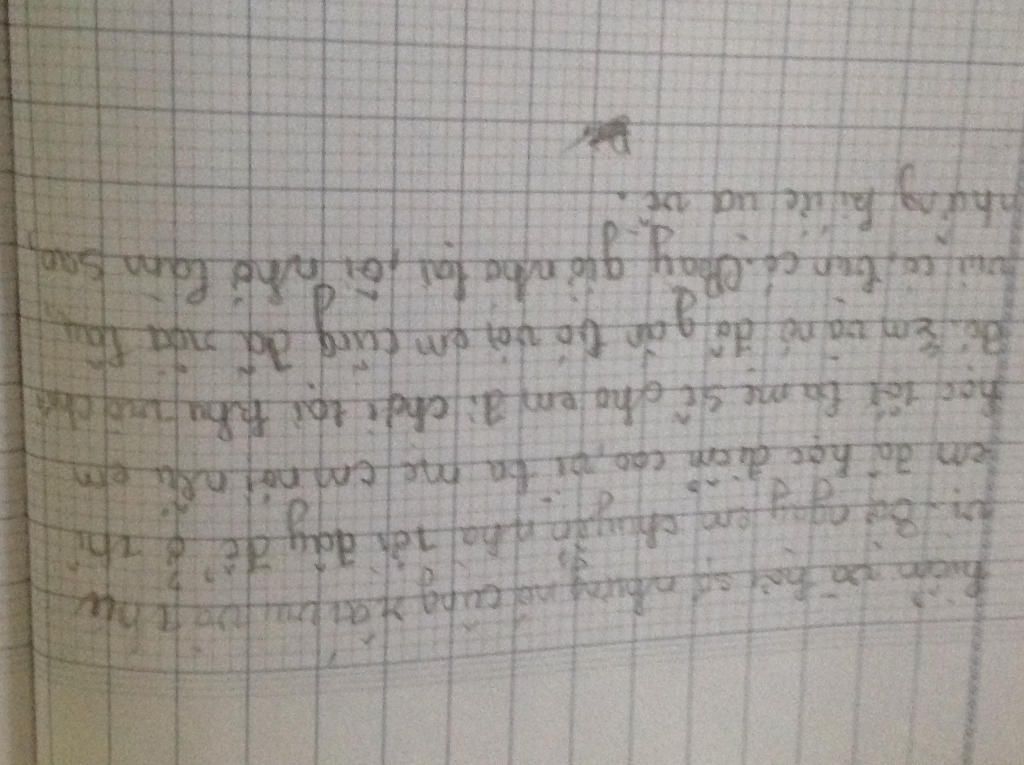 hiền và hơi cổ nhưng nó cũng rất vui và thú
vị. Bữa ngày em chuyển nhà tới đây để ở thì
em đã học điểm cao, vì ba mẹ em nói nếu em
học tốt ba mẹ sẽ cho em đi chơi tại khu vui chơi
đó. Em và nó đã gắn bó với em cũng đã nửa
vui có, buồn có. Bây giờ nhớ lại, ôi nhớ làm sao,
những kí ức ùa về.